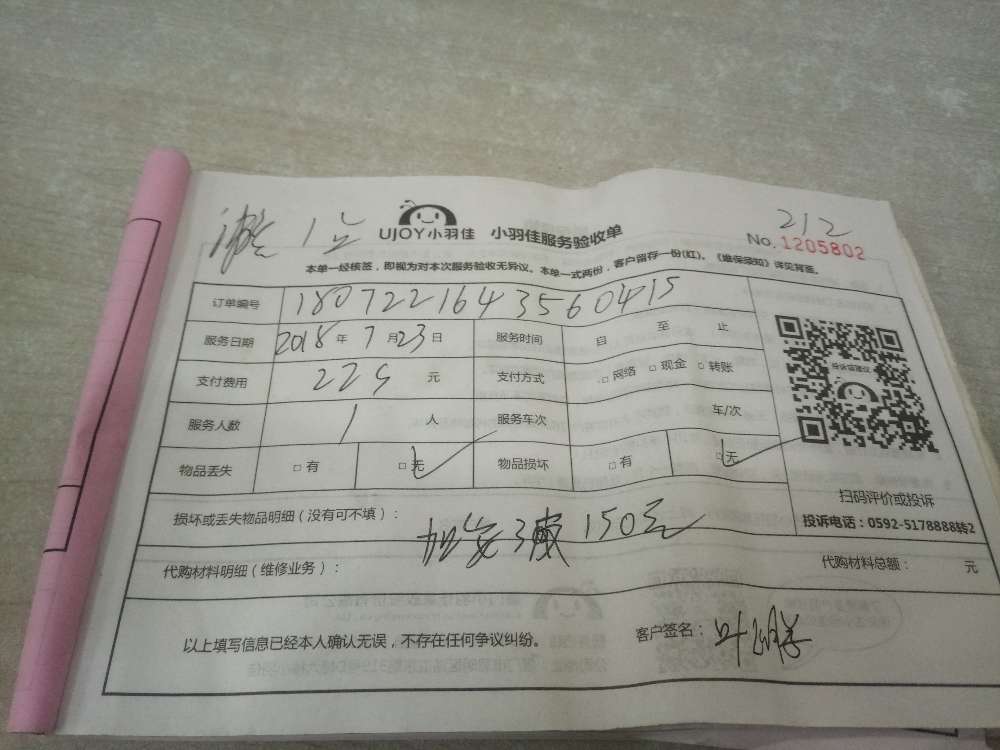 212
UJOY小羽佳 小羽佳服务验收单
No. 1205802
本单一经核签，即视为对本次服务验收无异议。本单一式两份，客户留存一份(红)。《维保须知》详见背面。
订单编号 1807221643560415
服务日期 2018年7月23日 服务时间 自 至 止
支付费用 225 元 支付方式 □网络 □现金 □转账
服务人数 1 人 服务车次 车/次
物品丢失 □有 □无 物品损坏 □有 □无
投诉或建议
扫码评价或投诉
投诉电话：0592-5178888转2
损坏或丢失物品明细（没有可不填）：
150元
代购材料明细（维修业务）： 代购材料总额： 元
以上填写信息已经本人确认无误，不存在任何争议纠纷。 客户签名：